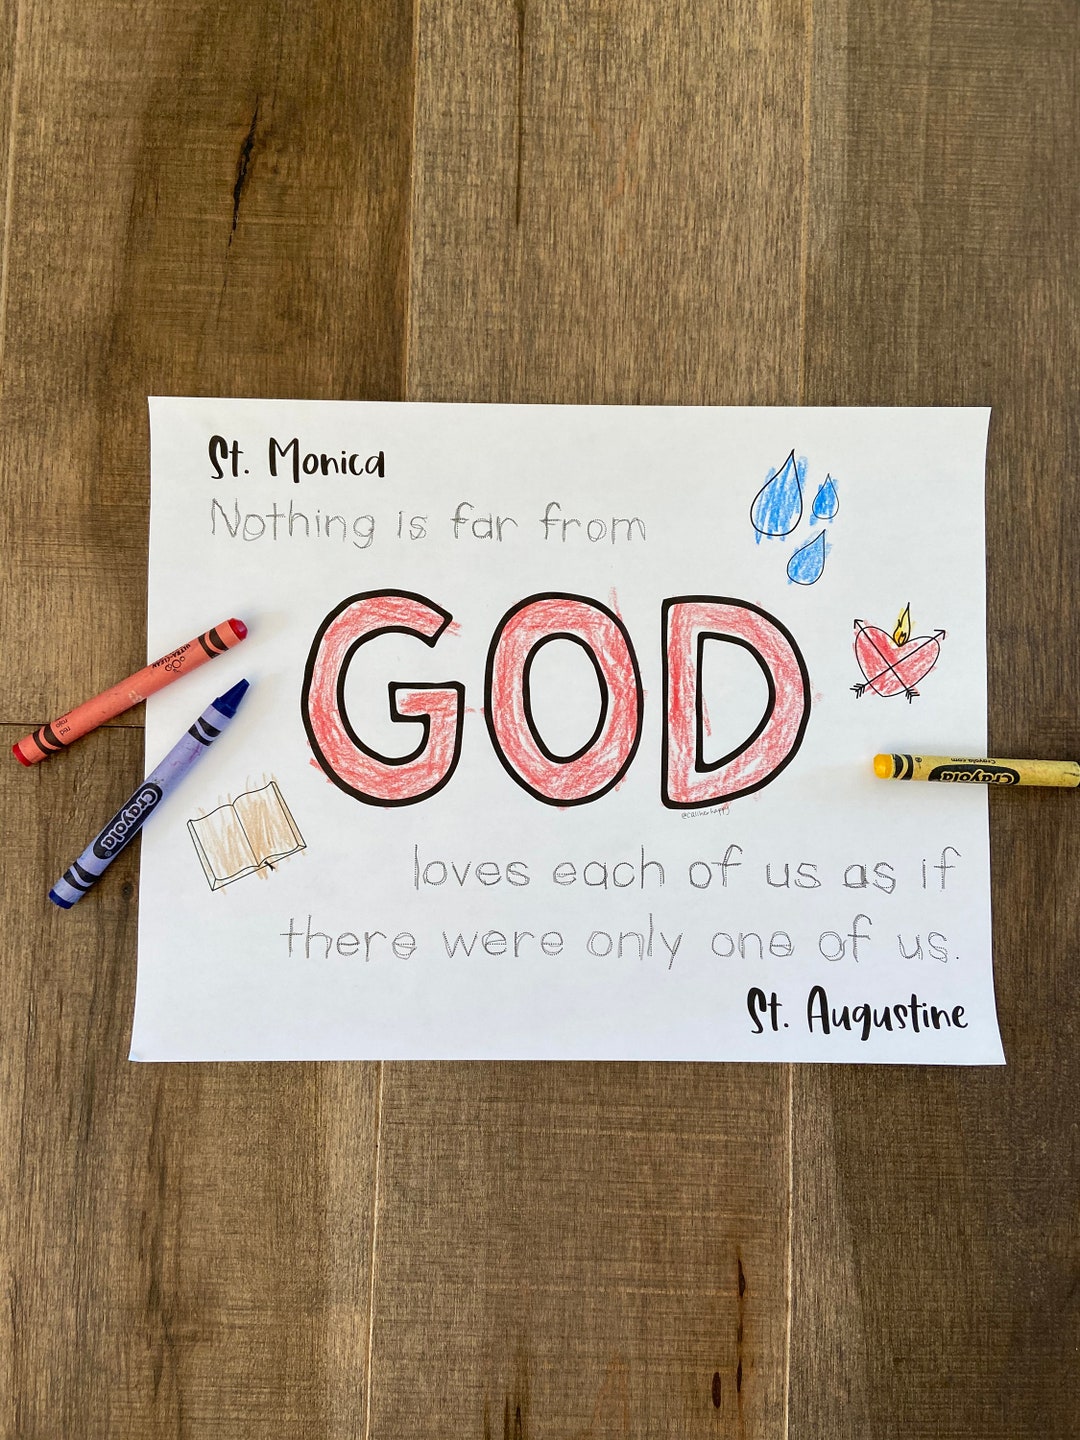 St. Monica
Nothing is far from
GOD
loves each of us as if
there were only one of us.
St. Augustine
ULTRA-CLEAN
red
rojo
Crayola
Crayola
Crayola.com